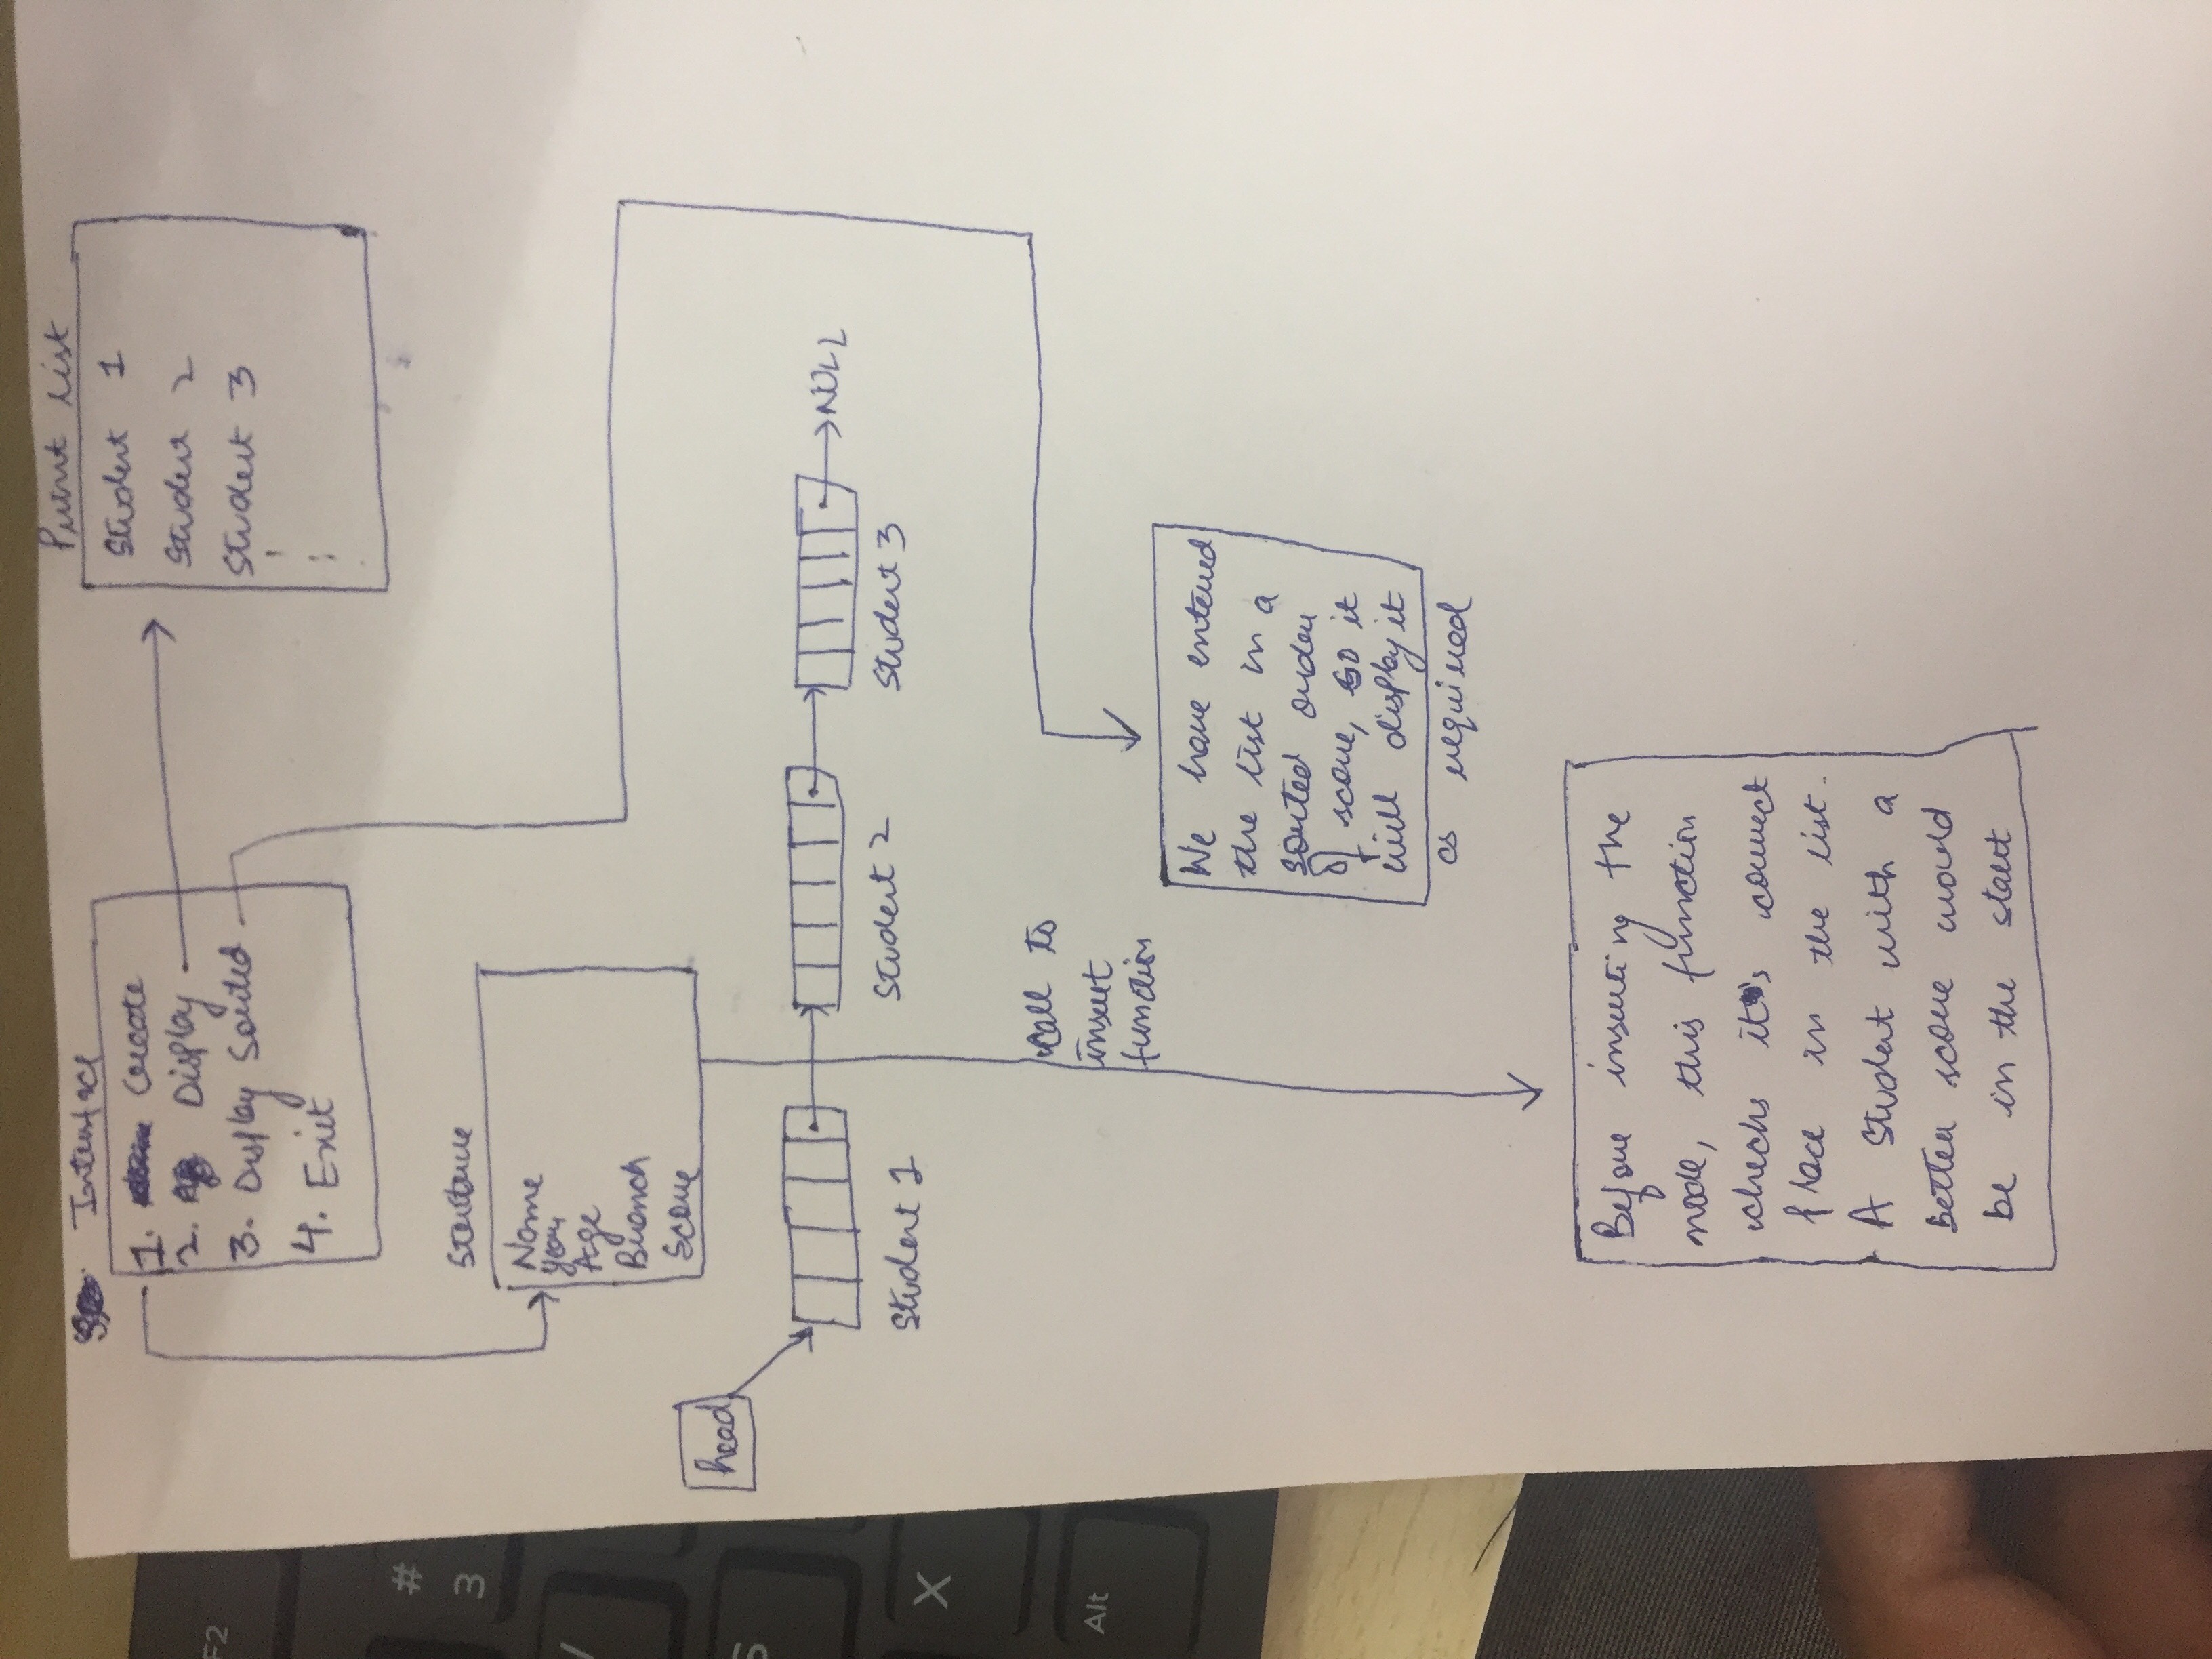 Interface
1. Create
2. Display
3. Display Sorted
4. Exit
Print list
Student 1
Student 2
Student 3
Structure
Name
Year
Age
Branch
Score
head
NULL
Student 1
Student 2
Student 3
call to
insert
function
We have entered
the list in a
sorted order
of score, so it
will display it
as required
Before inserting the
node, this function
checks it's correct
place in the list.
A student with a
better score would
be in the start
F2
#
3
S
X
Alt